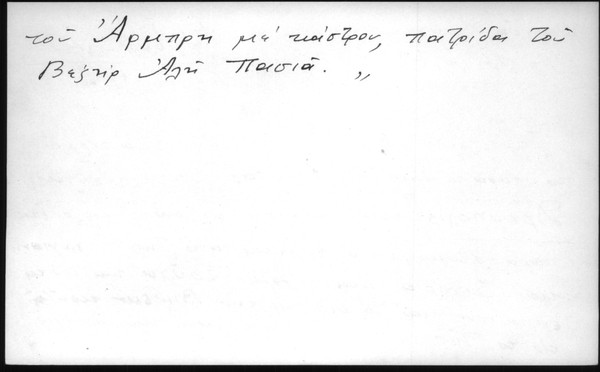 τοῦ Ἄρμπρη μέ κάστρον, πατρίδα τοῦ
Βεζήρ Ἀλῆ Πασιᾶ. „